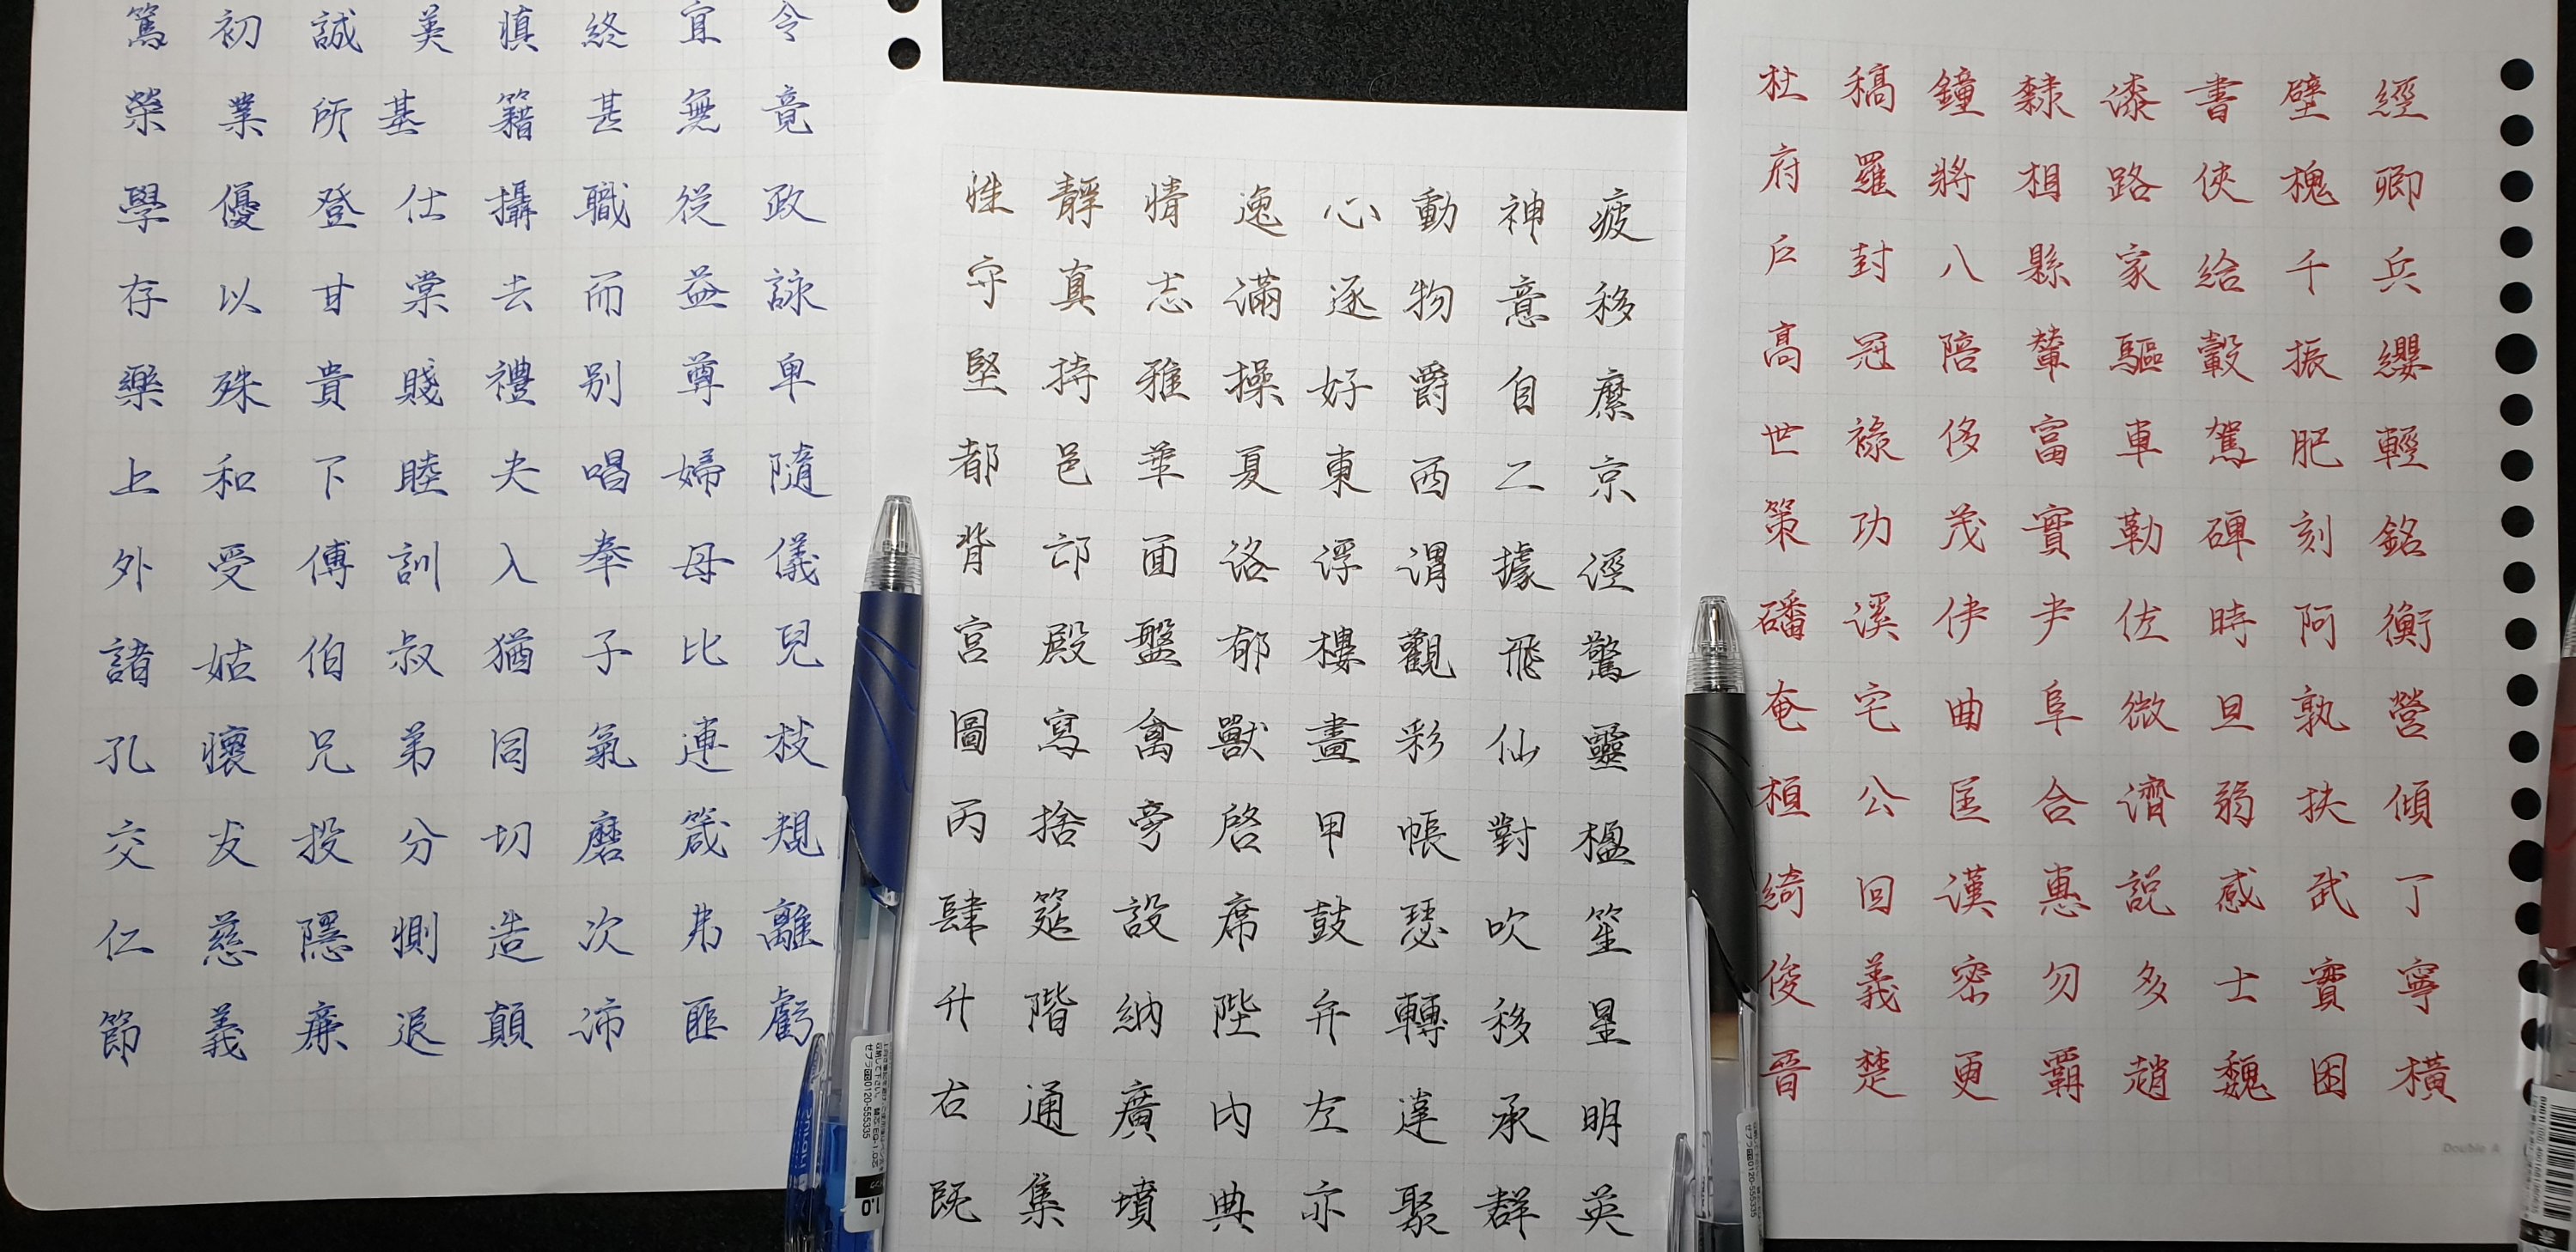 篤初誠美慎終宜令
榮業所基籍甚無竟
學優登仕攝職從政
存以甘棠去而益詠
樂殊貴賤禮別尊卑
上和下睦夫唱婦隨
外受傅訓入奉母儀
諸姑伯叔猶子比兒
孔懷兄弟同氣連枝
交友投分切磨箴規
仁慈隱惻造次弗離
節義廉退顛沛匪虧
性靜情逸心動神疲
守真志滿逐物意移
堅持雅操好爵自縻
都邑華夏東西二京
背邙面洛浮渭據涇
宮殿盤郁樓觀飛驚
圖寫禽獸畫彩仙靈
丙舍旁啓甲帳對楹
肆筵設席鼓瑟吹笙
升階納陛弁轉移星
右通廣內左達承明
既集墳典亦聚群英
杜稿鐘隸漆書壁經
府羅將相路俠槐卿
戶封八縣家給千兵
高冠陪輦驅轂振纓
世祿侈富車駕肥輕
策功茂實勒碑刻銘
磻溪伊尹佐時阿衡
奄宅曲阜微旦孰營
桓公匡合濟弱扶傾
綺回漢惠說感武丁
俊義密勿多士寶寧
晉楚更霸趙魏困橫
Double A
0120-555335
1.0
0120-555335